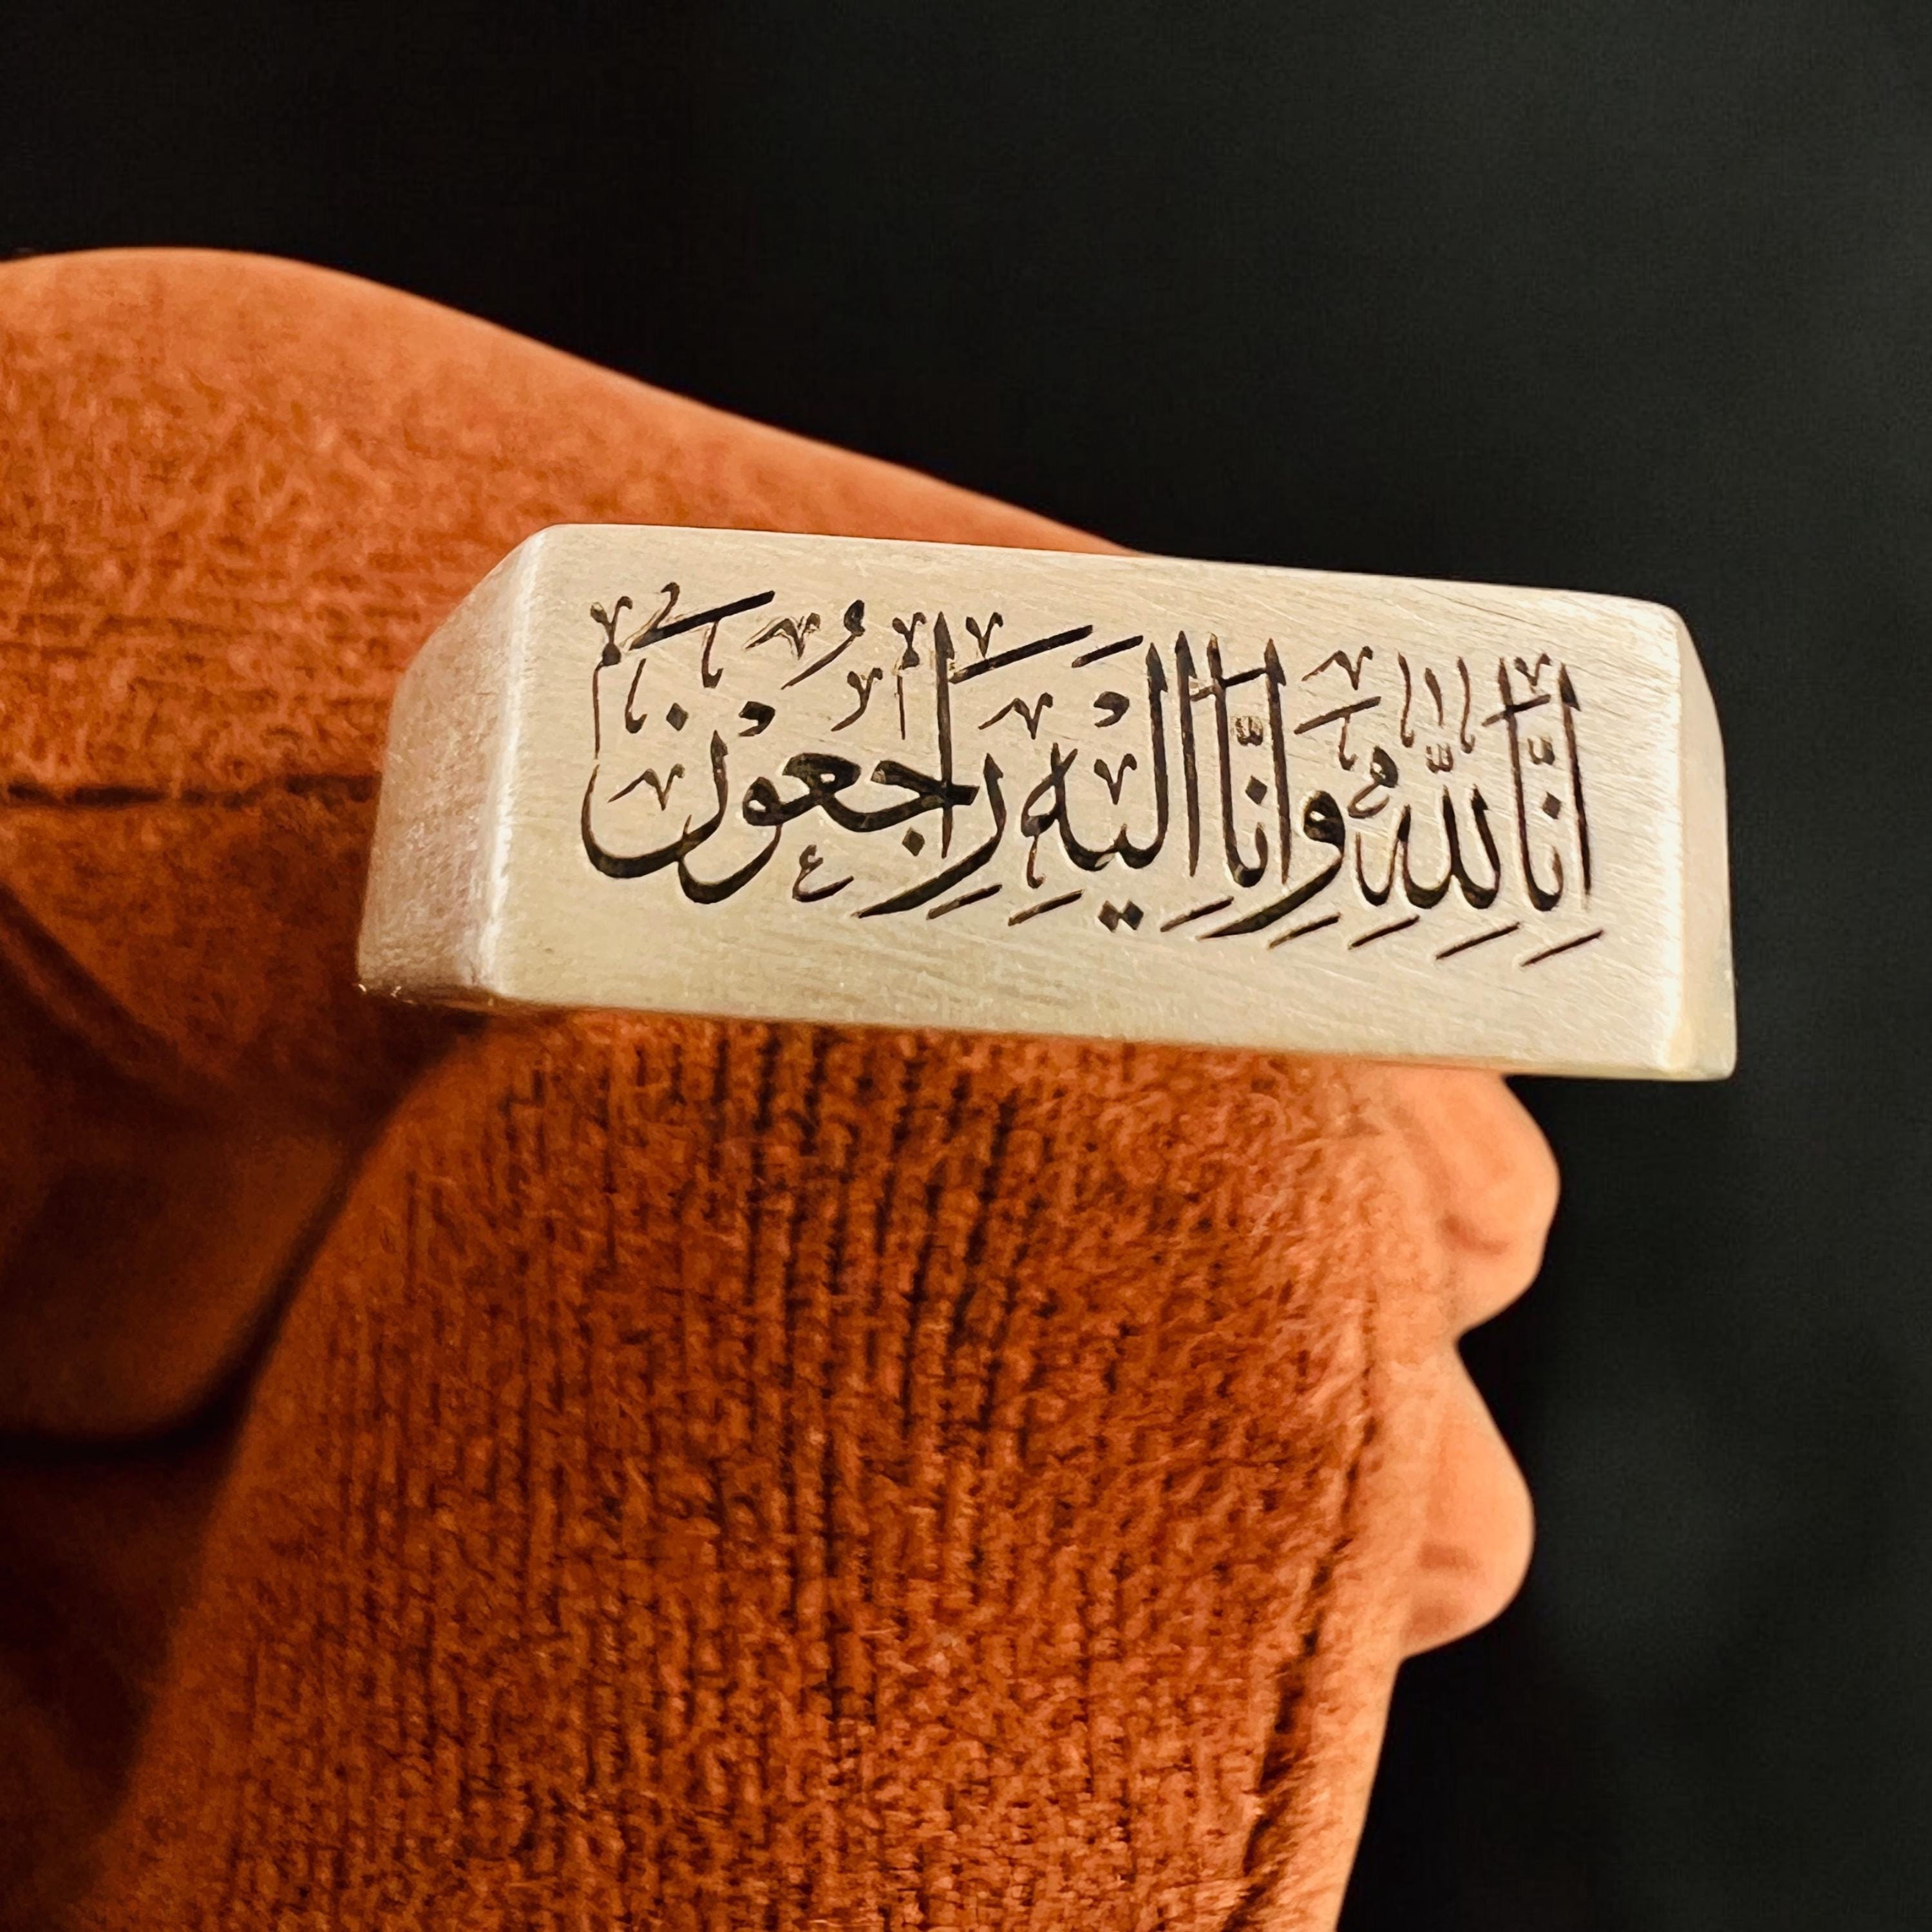 اِنَّا لِلّٰهِ وَاِنَّا اِلَيْهِ رَاجِعُوْنَ